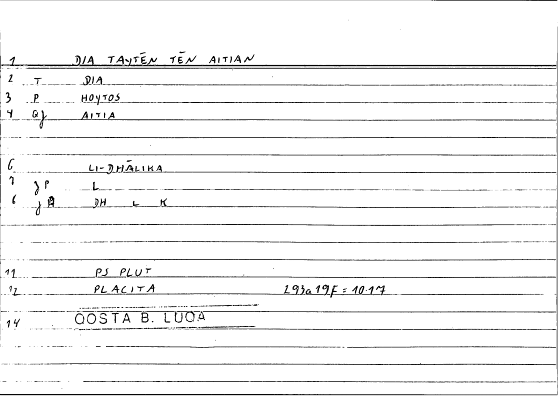 1 DIA TAYTĒN TĒN AITIAN
2 T DIA
3 P HOYTOS
4 Qj AITIA
6 LI-DHĀLIKA
7 jP L
6 j DH L K
11 PS PLUT
12 PLACITA 293a19F = 10.17
14 QOSTA B. LUQA